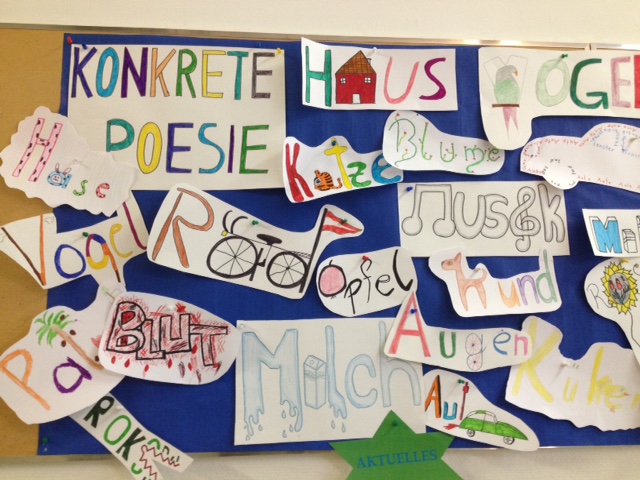 KONKRETE
POESIE
HAUS
VÖGEL
Hase
Katze
Blume
Vogel
Rad
MUSIK
Apfel
Hund
Pal
BLUT
Milch
Augen
Auto
ROK
AKTUELLES